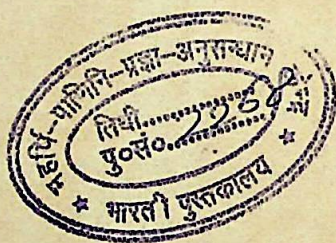 महर्षि-पाणिनि-प्रज्ञा-अनुसन्धान
तिथी..............
पु०सं०
★ भारती पुस्तकालय ★